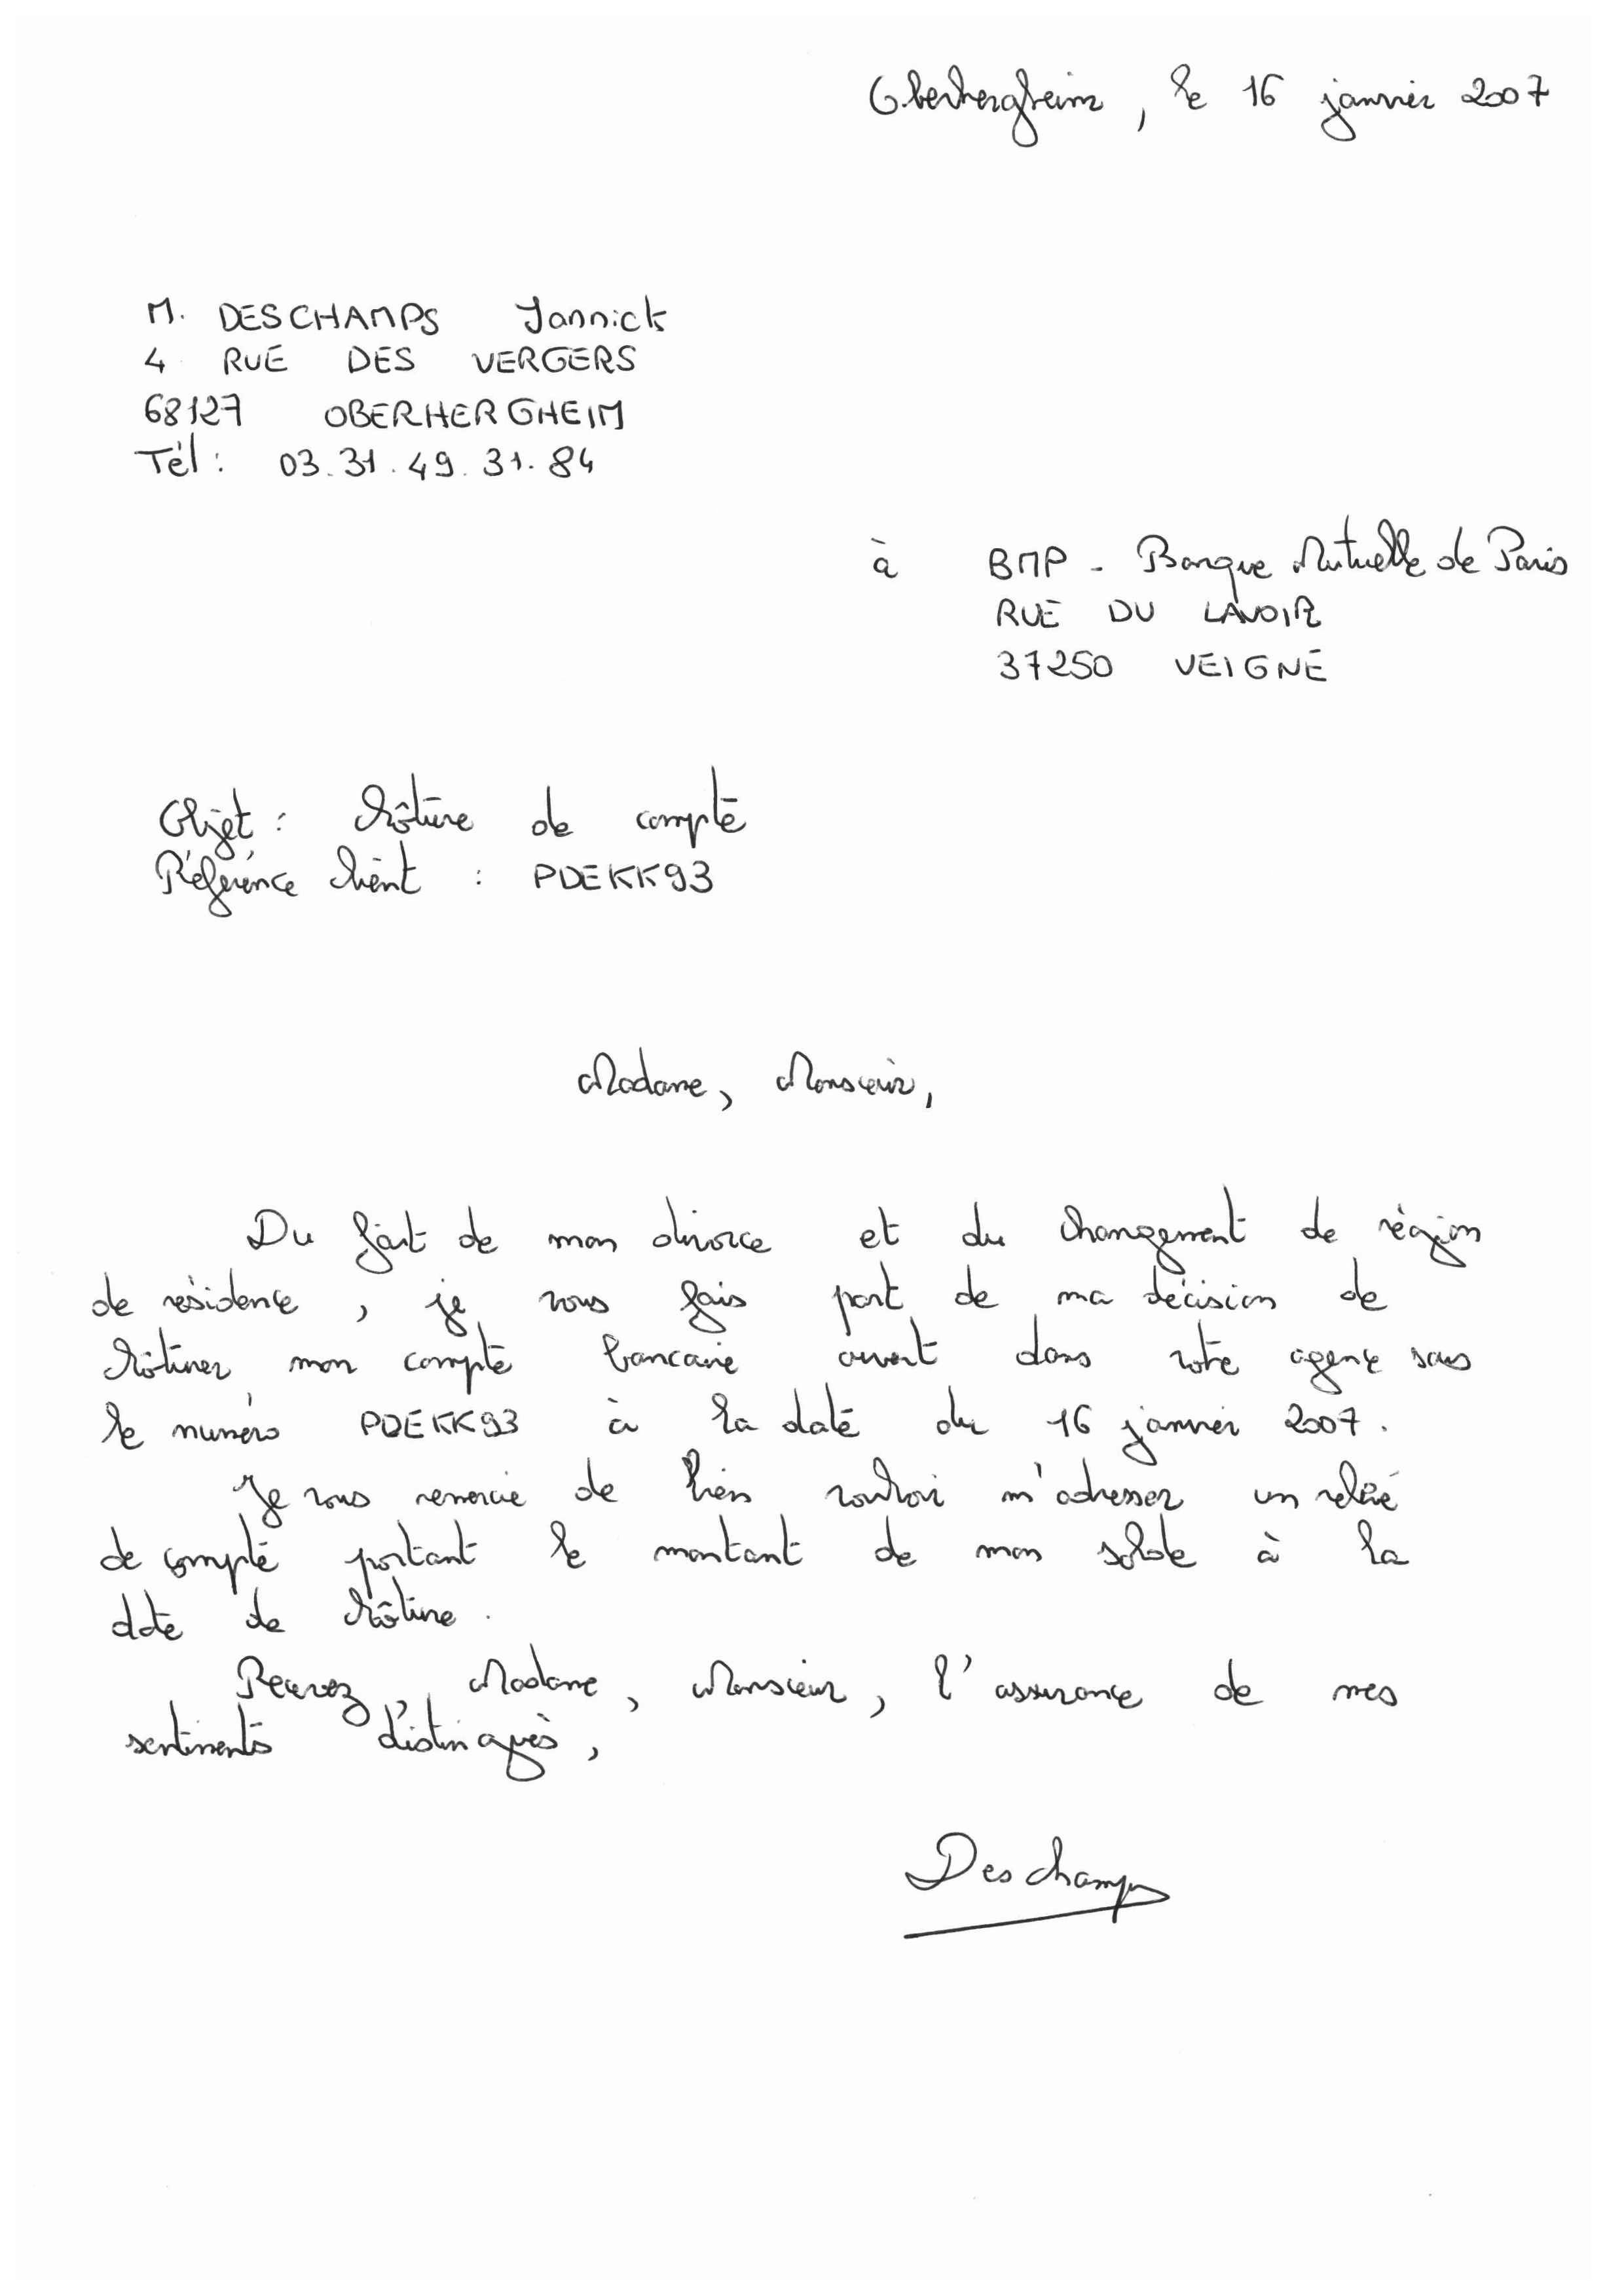 Oberhergheim, le 16 janvier 2007
M. DESCHAMPS Yannick
4 RUE DES VERGERS
68127 OBERHERGHEIM
Tél : 03.31.49.31.84
à BMP - Banque Mutuelle de Paris
RUE DU LAVOIR
37250 VEIGNE
Objet : Clôture de compte
Référence client : PDEKK93
Madame, Monsieur,
Du fait de mon divorce et du changement de région
de résidence, je vous fais part de ma décision de
clôturer mon compte bancaire ouvert dans votre agence sous
le numéro PDEKK93 à la date du 16 janvier 2007.
Je vous remercie de bien vouloir m'adresser un relevé
de compte portant le montant de mon solde à la
date de clôture.
Recevez, Madame, Monsieur, l'assurance de mes
sentiments distingués,
Deschamps